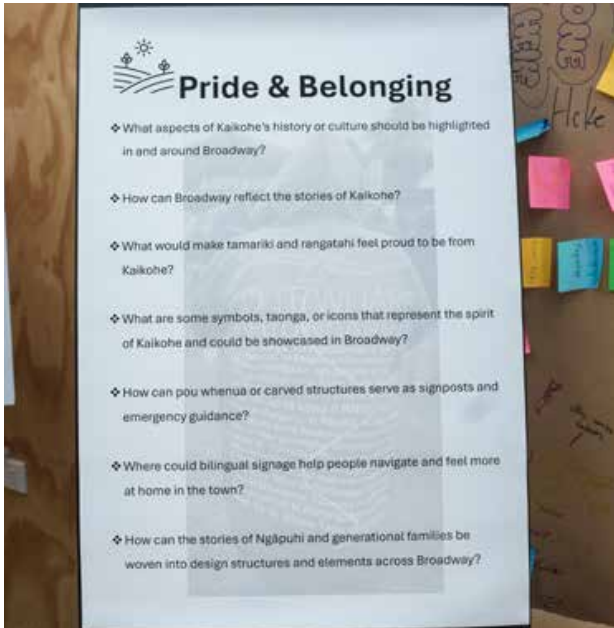 Pride & Belonging
❖ What aspects of Kaikohe's history or culture should be highlighted
in and around Broadway?
❖ How can Broadway reflect the stories of Kaikohe?
❖ What would make tamariki and rangatahi feel proud to be from
Kaikohe?
❖ What are some symbols, taonga, or icons that represent the spirit
of Kaikohe and could be showcased in Broadway?
❖ How can pou whenua or carved structures serve as signposts and
emergency guidance?
❖ Where could bilingual signage help people navigate and feel more
at home in the town?
❖ How can the stories of Ngāpuhi and generational families be
woven into design structures and elements across Broadway?
Heke